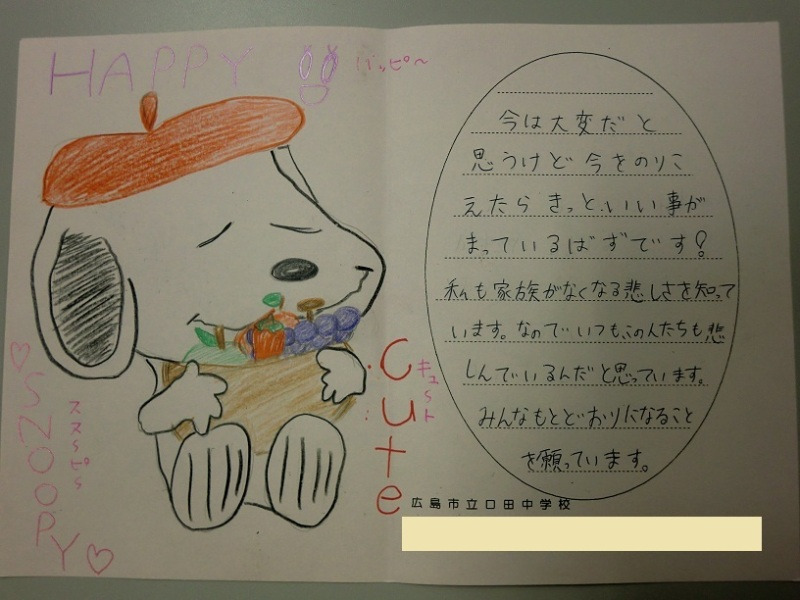 HAPPY
ハッピ〜
SNOOPY
スヌ〜ピ〜
Cute
キュ〜ト
今は大変だと
思うけど今をのりこ
えたらきっと、いい事が
まっているばずです!
私も家族がなくなる悲しさを知って
います。なのでいつも、この人たちも悲
しんでいるんだと思っています。
みんなもとどおりになること
を願っています。
広島市立口田中学校